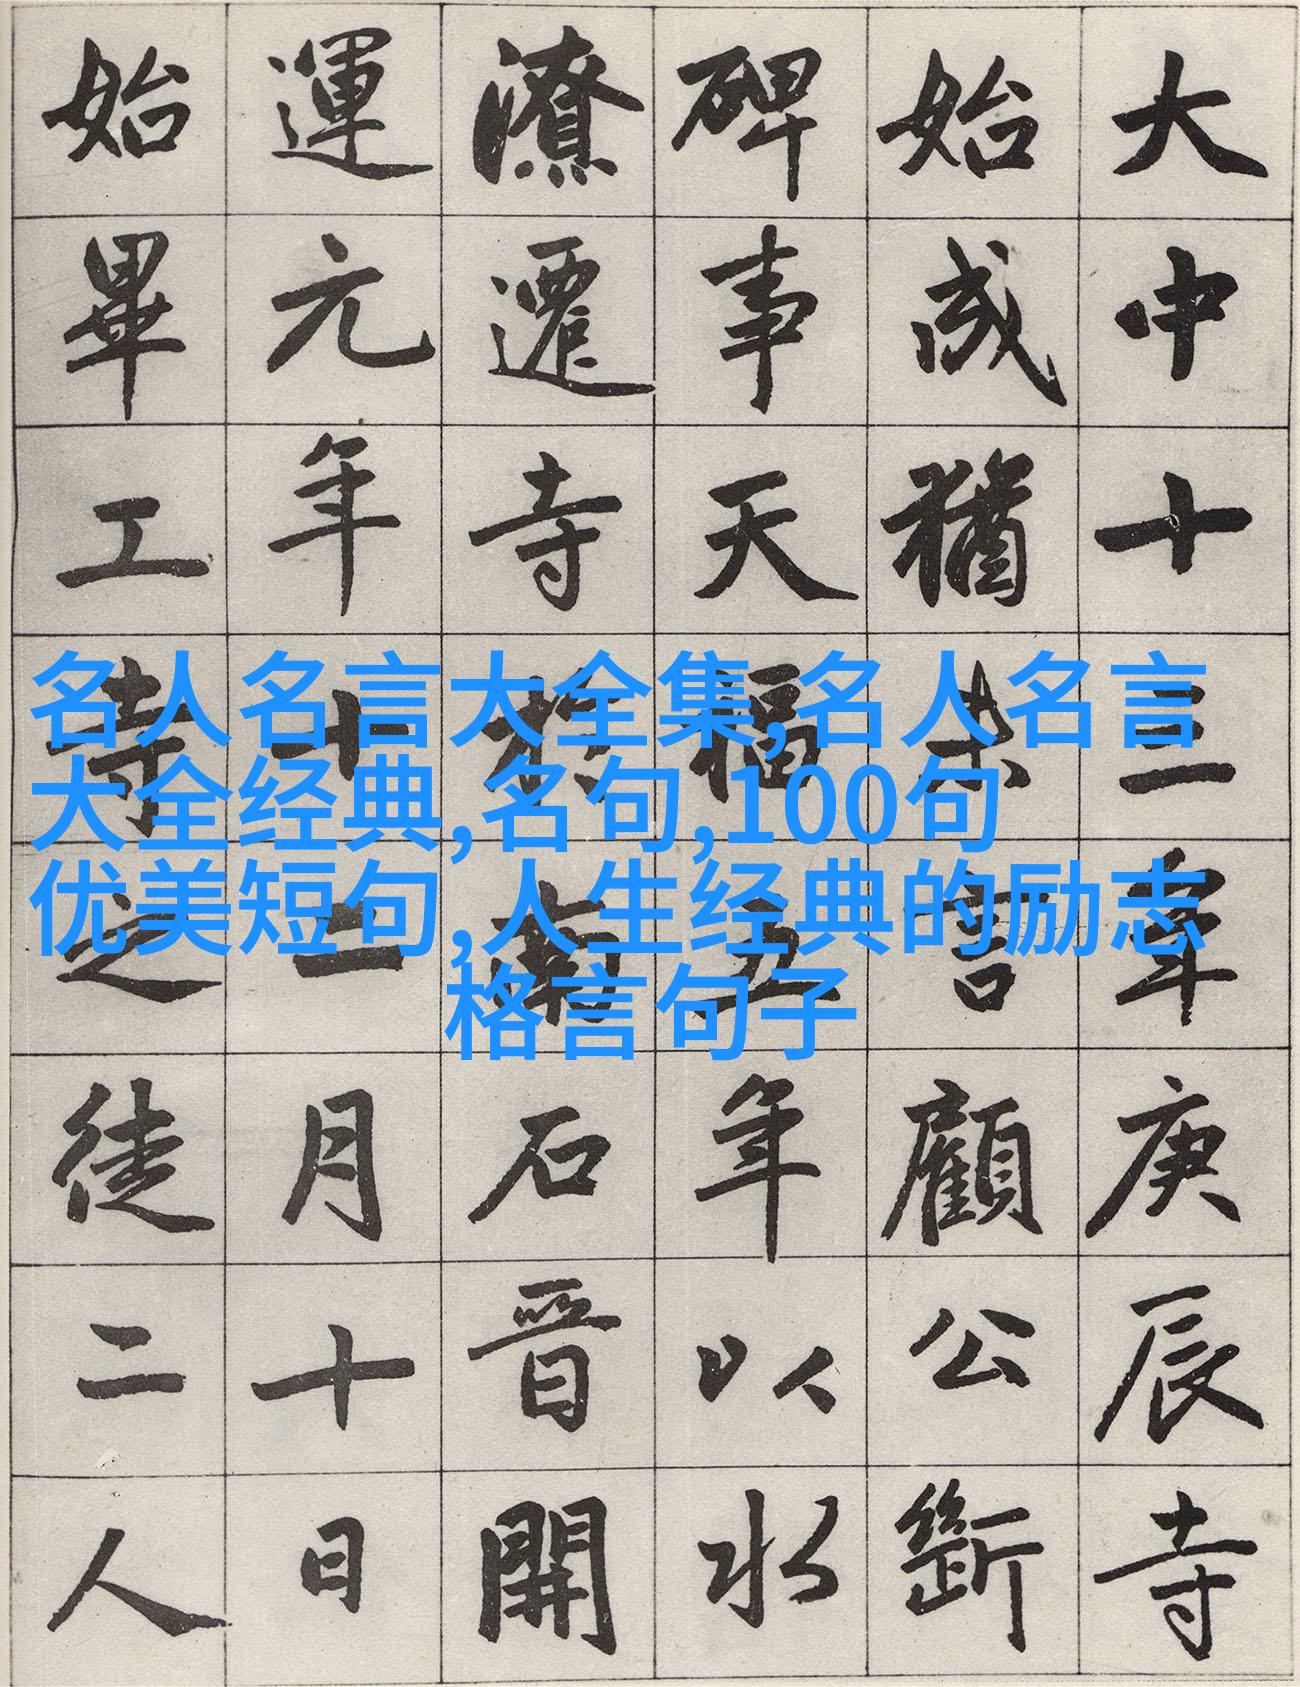 名人名言大全集,名人名言
大全经典,名句,100句
优美短句,人生经典的励志
格言句子
大中十三年庚辰寺
始成猶未言顧公
碑事天福五年以水
潦遷寺於南石晉開
運元年十二月十日
始畢工寺之徒二人